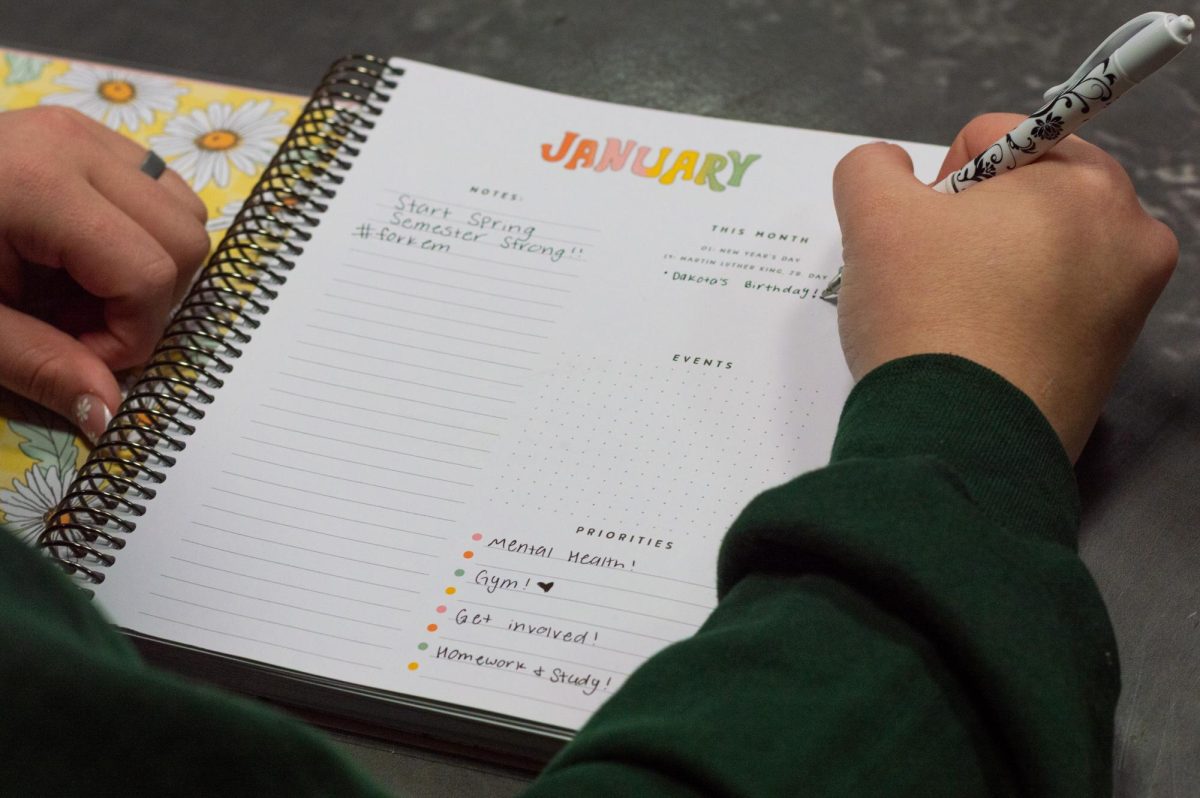 JANUARY
NOTES:
Start Spring
Semester Strong!!
#forkem
THIS MONTH
01: NEW YEAR'S DAY
17: MARTIN LUTHER KING, JR. DAY
• Dakota's Birthday!!
EVENTS
PRIORITIES
Mental Health!
Gym! ♥
Get involved!
Homework & Study!